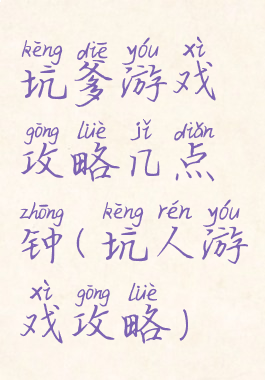 kēng diē yóu xì
坑爹游戏
gōng lüè jǐ diǎn
攻略几点
zhōng kēng rén yóu
钟(坑人游
xì gōng lüè
戏攻略)